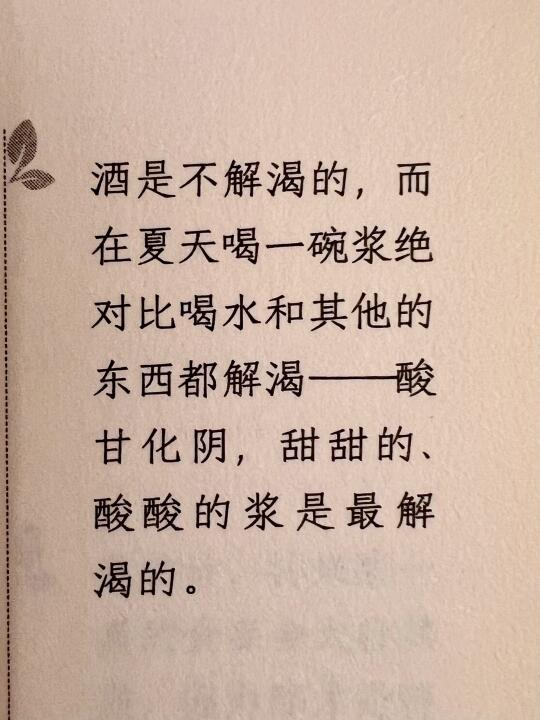 酒是不解渴的，而
在夏天喝一碗浆绝
对比喝水和其他的
东西都解渴——酸
甘化阴，甜甜的、
酸酸的浆是最解
渴的。